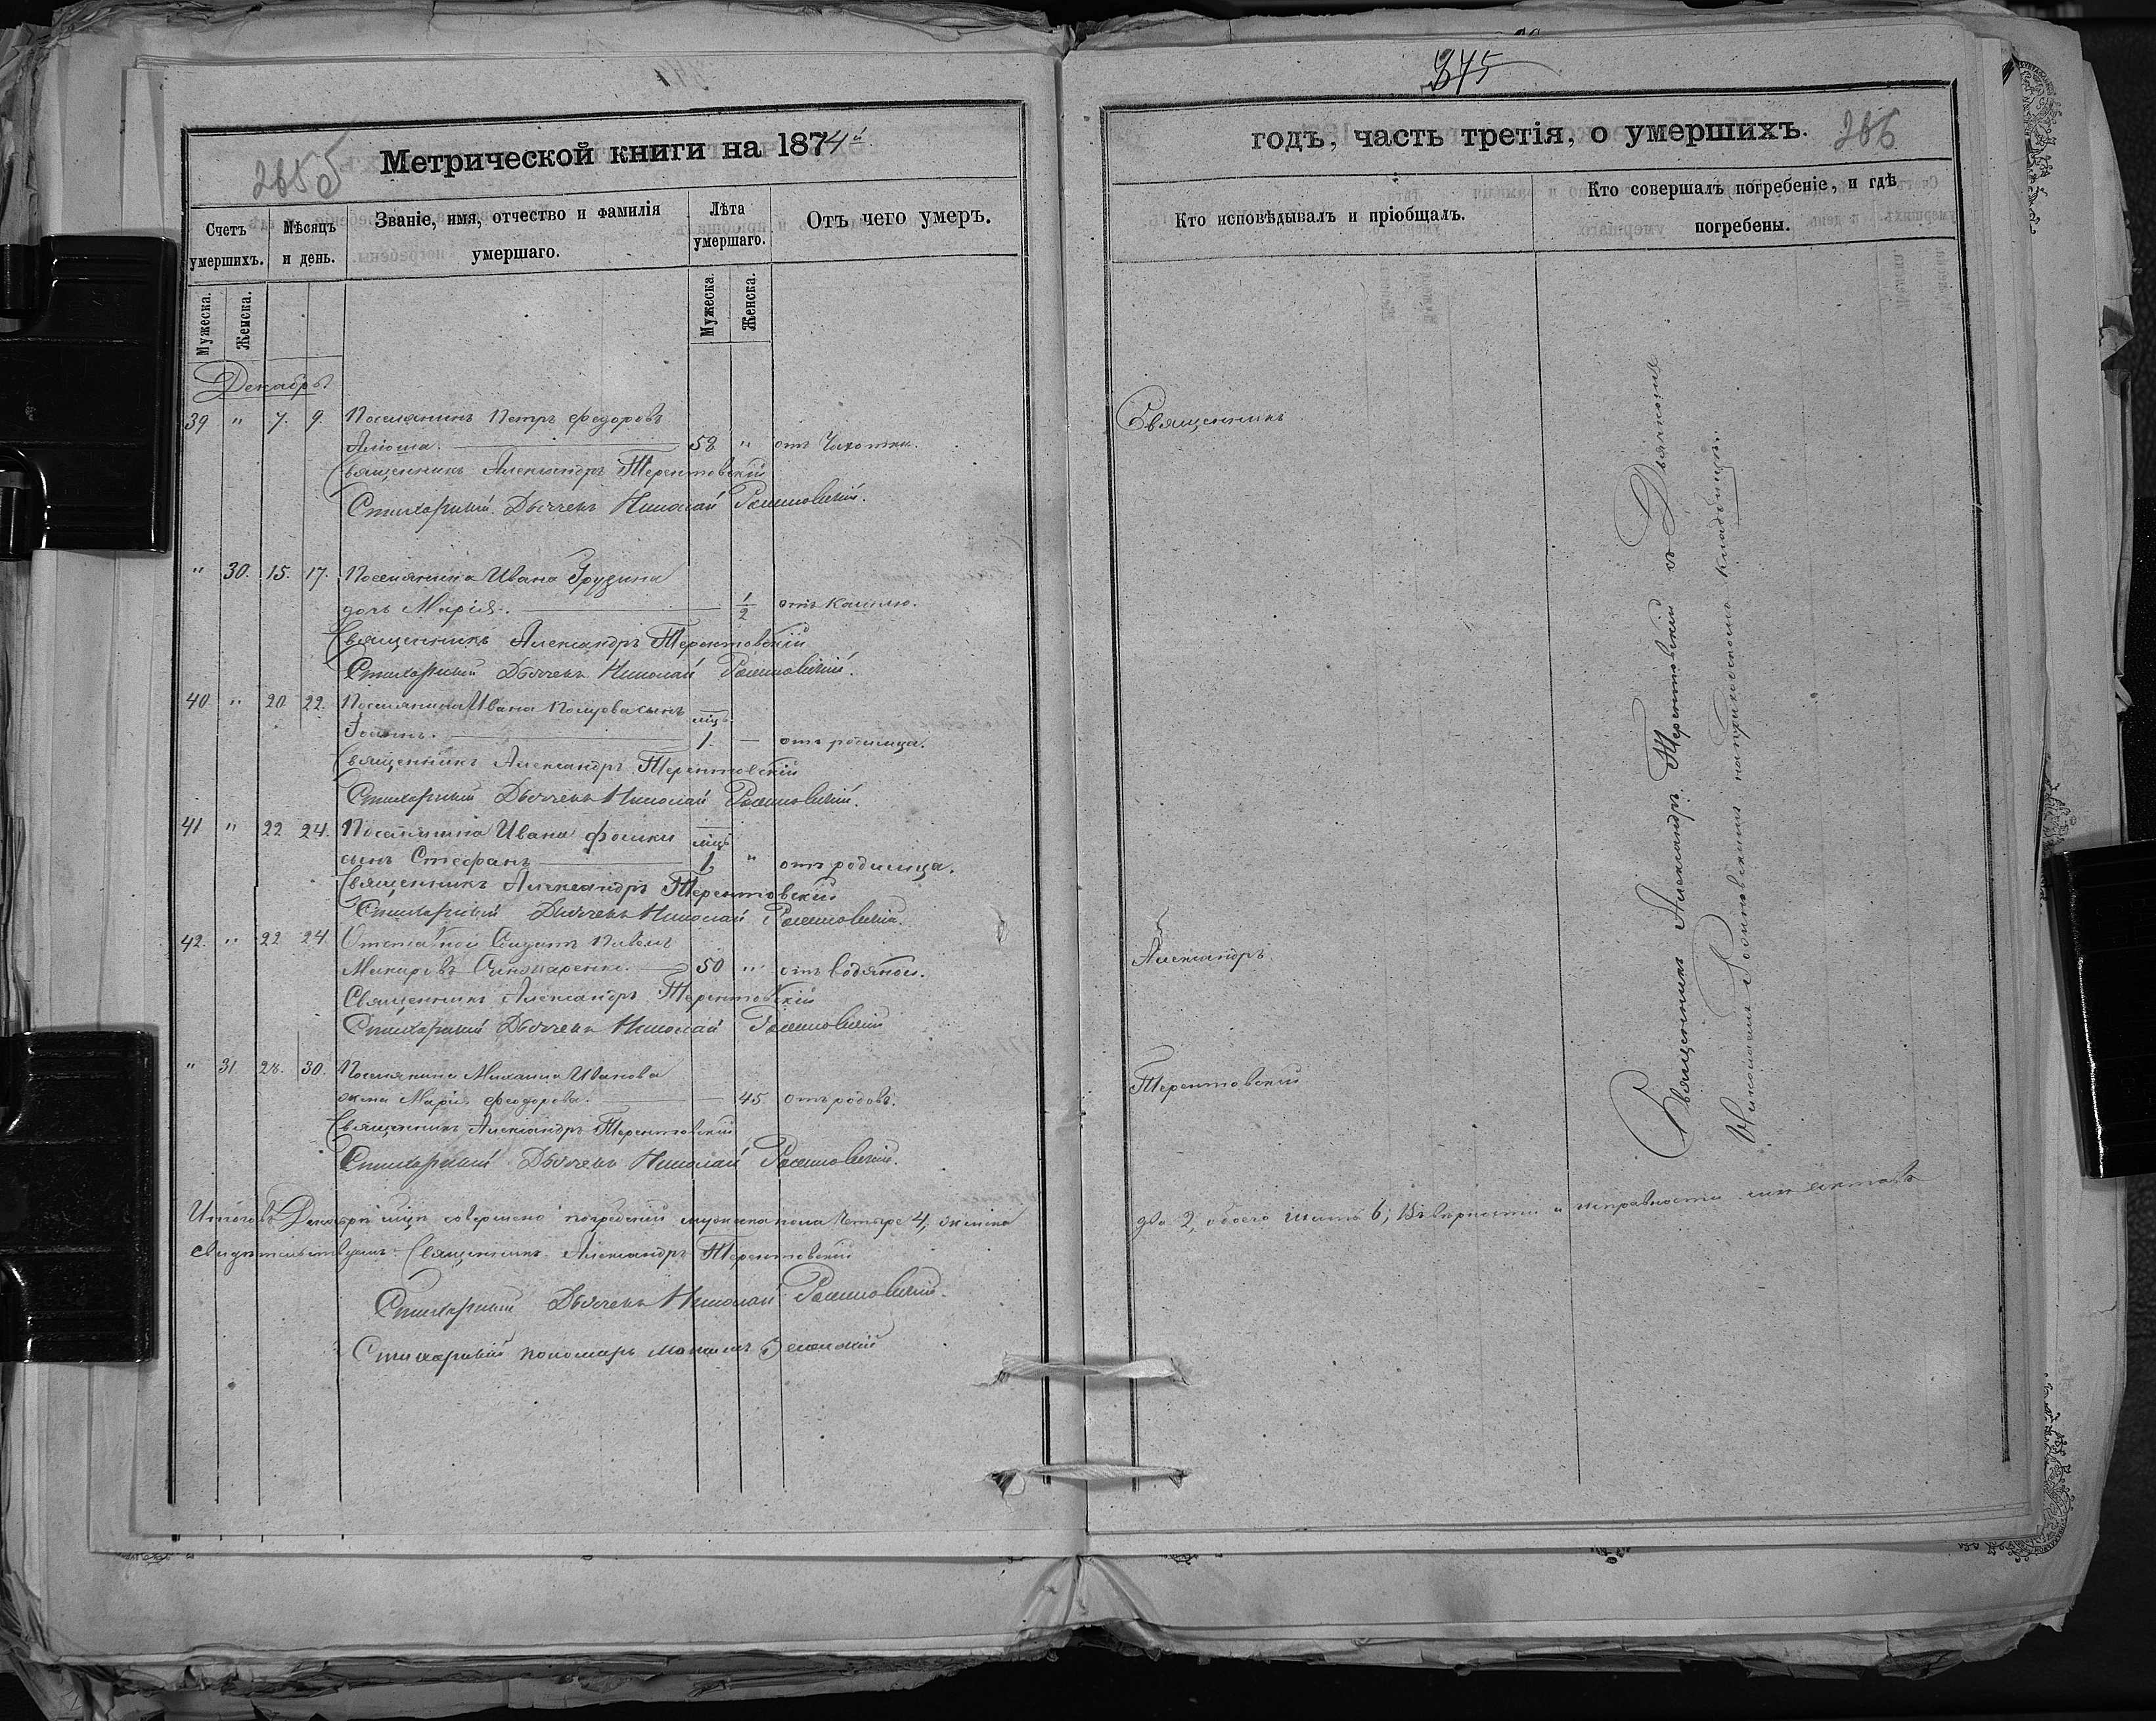 Метрической книги на 1874й
Счетъ умершихъ.
Мѣсяцъ и день.
Званіе, имя, отчество и фамилія умершаго.
Лѣта умершаго.
Отъ чего умеръ.
Мужеска.
Женска.
Мужеска
Женска.
Декабрь
39 " 7. 9. Поселянинъ Петръ Феодоровъ
58 " отъ Чахотки.
Священникъ Александръ Терентовский
Стихарный Дьячекъ Николай
" 30. 15. 17. Поселянина Ивана Грузина
дочь Марія. 1/2 отъ кашлю.
Священникъ Александръ Терентовскій
Стихарный Дьячекъ Николай
40 " 20 22. Поселянина Ивана сынъ мцъ
1. — отъ родимца.
Священникъ Александръ Терентовскій
Стихарный Дьячекъ Николай
41 " 22 24. Поселянина Ивана Фомки мцъ
сынъ Стефанъ 1. " отъ родимца.
Священникъ Александръ Терентовскій
Стихарный Дьячекъ Николай
42. " 22 24. Отставной Солдатъ
50 " отъ водяной.
Священникъ Александръ Терентовскій
Стихарный Дьячекъ Николай
" 31. 28. 30. Поселянина Михаила Иванова
жена Марія Феодорова. 45. отъ родовъ.
Священникъ Александръ Терентовскій
Стихарный Дьячекъ Николай
Итого въ Декабрѣ мцѣ совершено погребеній мужеска пола Четыре 4, женска
свидѣтельствуемъ: Священникъ Александръ Терентовскій
Стихарный Дьячекъ Николай
Стихарный пономарь
375
годъ, часть третія, о умершихъ. 286
Кто исповѣдывалъ и пріобщалъ.
Кто совершалъ погребеніе, и гдѣ погребены.
Священникъ
Александръ
Терентовскій
Священникъ Александръ Терентовскій съ Дьячкомъ
Николаемъ на приходскомъ кладбищѣ.
два 2, обоего шесть 6; Въ вѣрности и исправности сихъ актовъ